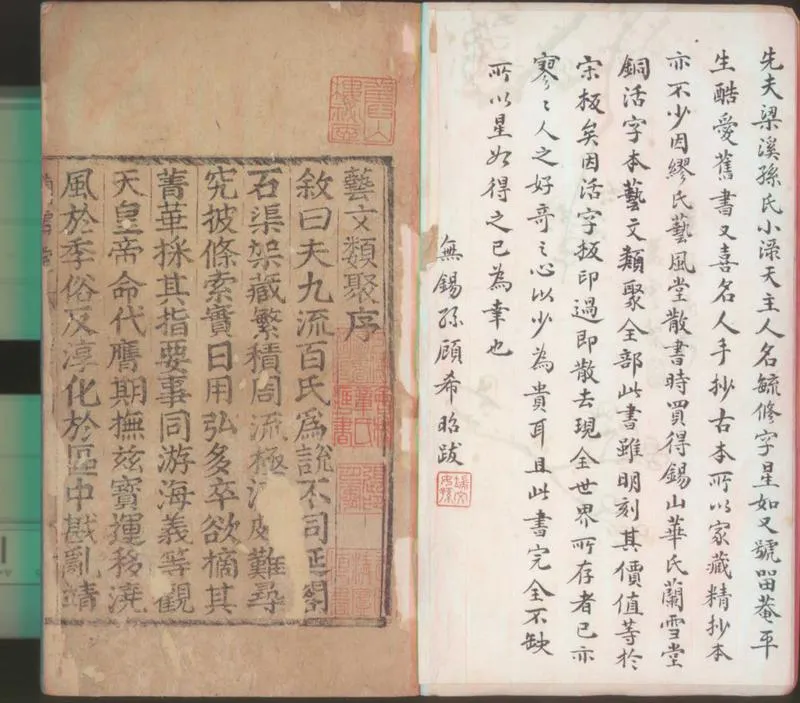 先夫梁溪孫氏小淥天主人名毓修字星如又號畱菴平
生酷愛舊書又喜名人手抄古本所以家藏精抄本
亦不少因繆氏藝風堂散書時買得錫山華氏蘭雪堂
銅活字本藝文類聚全部此書雖明刻其價值等於
宋板矣因活字板印過即散去現全世界所存者已亦
寥〻人之好奇之心以少為貴耳且此書完全不缺
所以星如得之已為幸也
無錫孫顧希昭跋
藝文類聚序
敘曰夫九流百氏為說不同延閣
石渠架藏繁積周流極源頗難尋
究披條索實日用弘多卒欲摘其
菁華採其指要事同游海義等觀
天皇帝命代膺期撫茲寶運移澆
風於季俗反淳化於區中戡亂靖